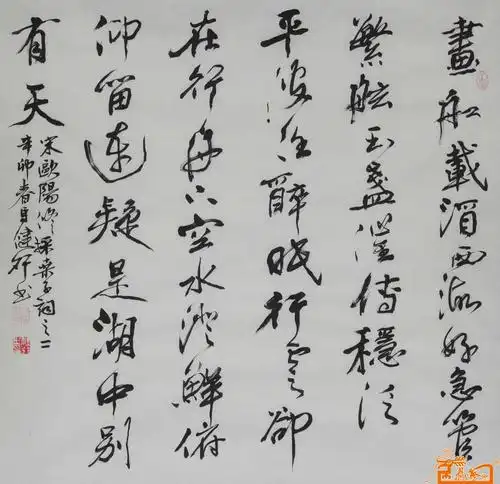 畫船載酒西湖好急管
繁絃玉盞催傳穩泛
平波任醉眠行雲卻
在行舟下空水澄鮮俯
仰留連疑是湖中別
有天
宋歐陽修採桑子詞之二
辛卯春月健行书